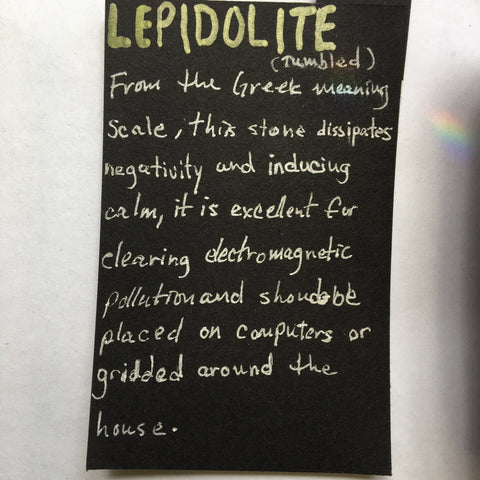 LEPIDOLITE
(Tumbled)
From the Greek meaning
Scale, this stone dissipates
negativity and inducing
calm, it is excellent for
clearing electromagnetic
pollution and should be
placed on computers or
gridded around the
house.